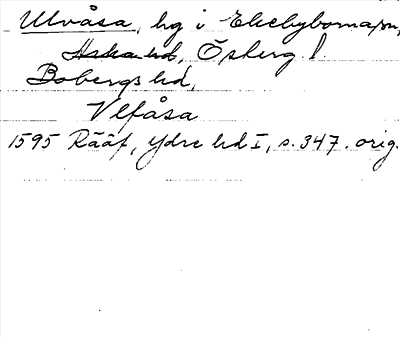 Ulvåsa, hg i Ekebyborna sn,
Aska hd, Österg.l.
Bobergs hd,
Vlfåsa
1595 Rääf, Ydre hd I, s. 347. orig.